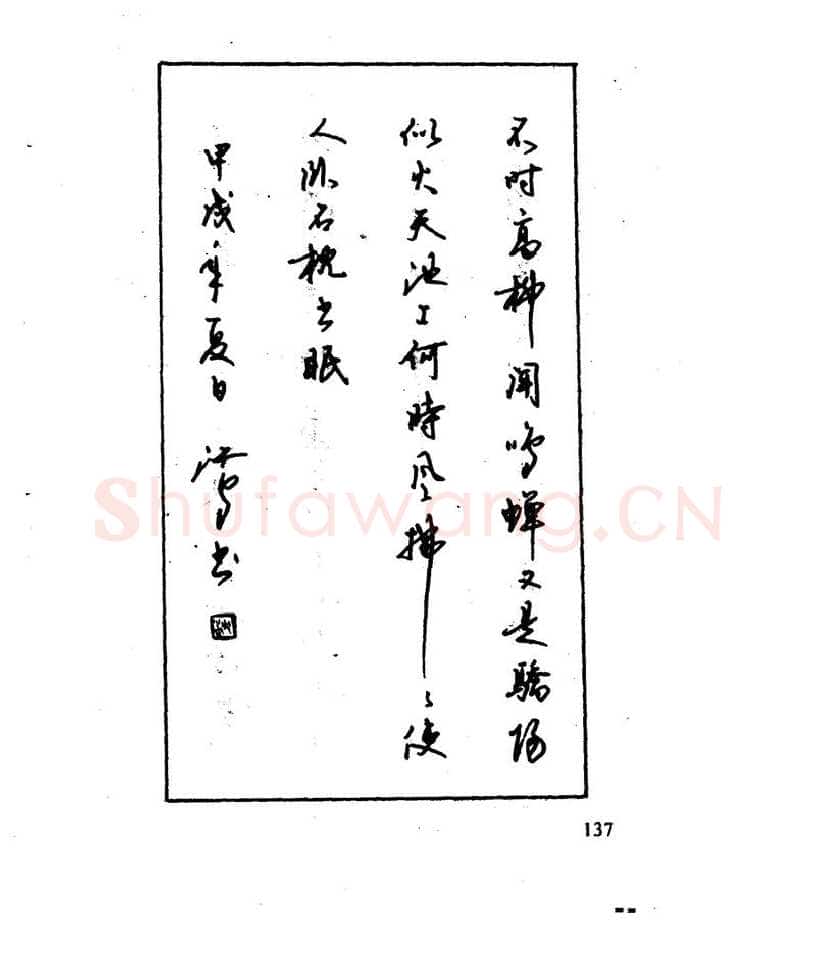 不时高柳闻鸣蝉又是驕阳
似火天池上何時风拂〻使
人卧石枕书眠
甲戌年夏日 书
Shufawang.CN
137